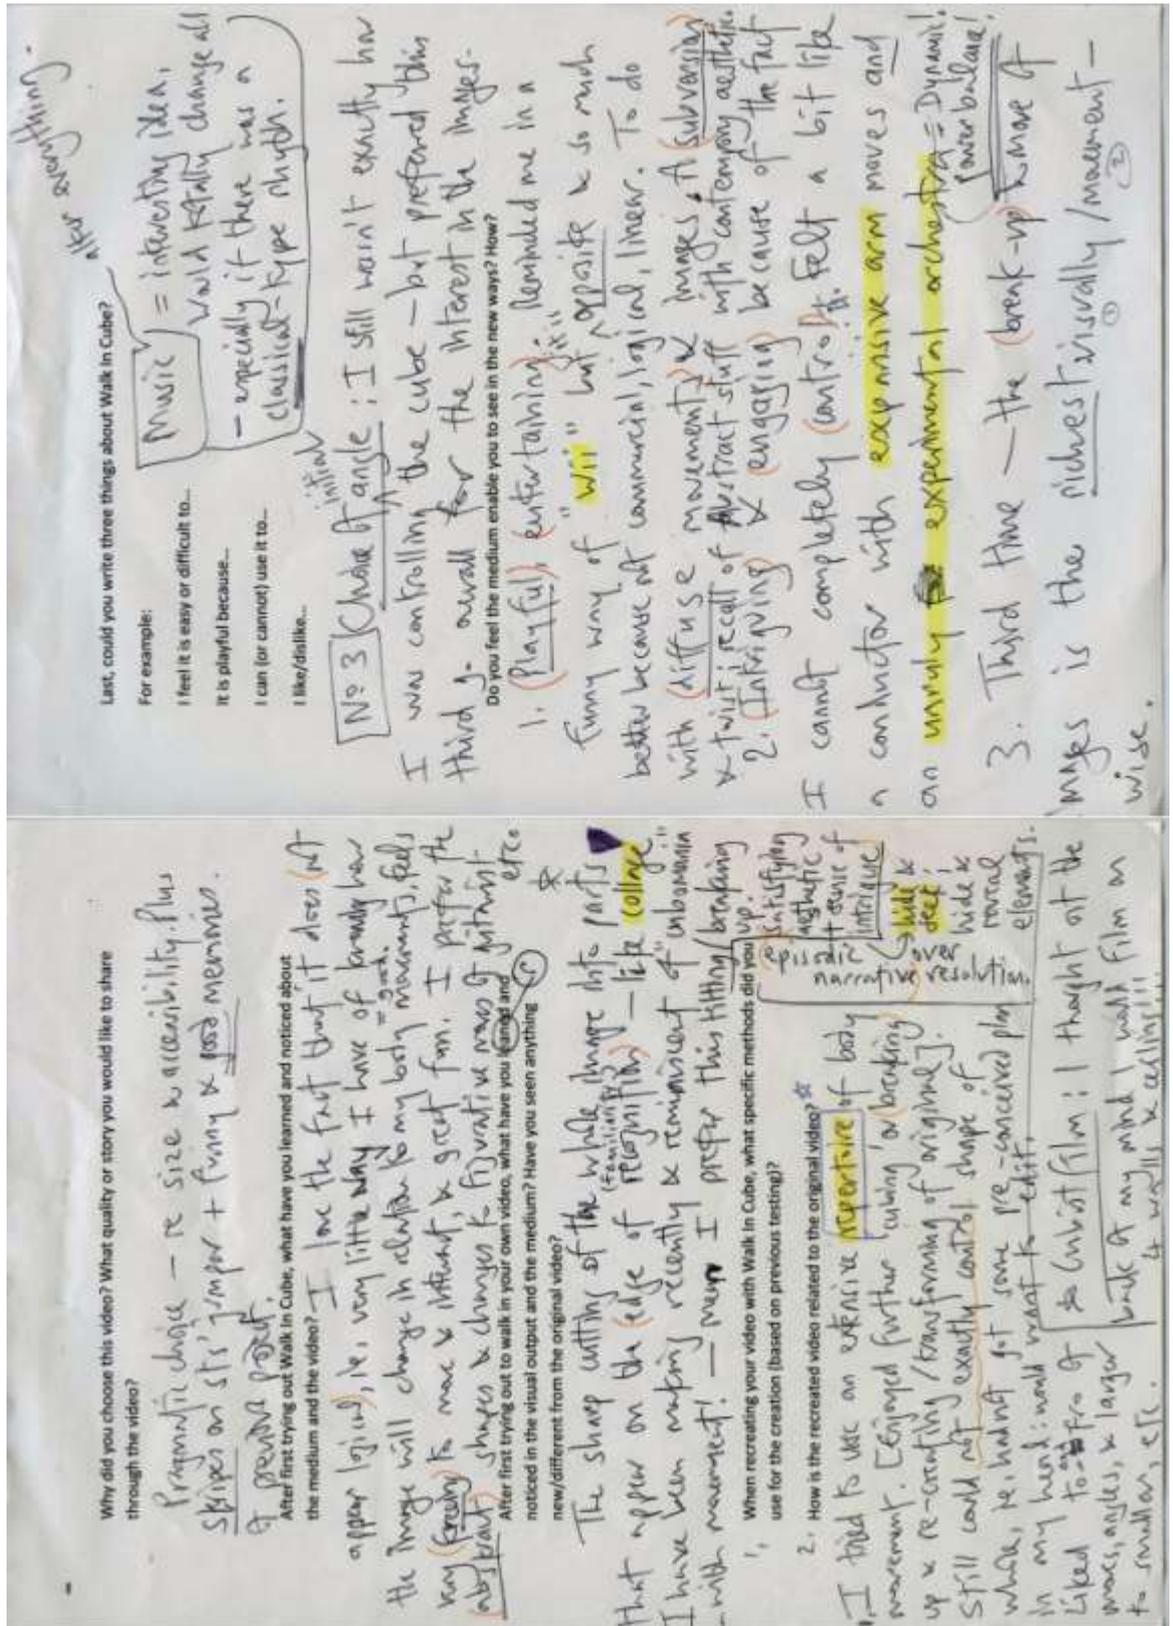 Why did you choose this video? What quality or story you would like to share
through the video?
Pragmatic choice – re size & accessibility. Plus
stripes on sts' jumper + funny & good memories.
of previous
After first trying out Walk In Cube, what have you learned and noticed about
the medium and the video?
I love the fact that it does (not
appear logical), ie, very little way I have of knowing how
the image will change in relation to my body movements, feels
= good.
very (freeing) to move & interact, & great fun. I prefer the
(abstract) shapes & changes to figurative ones of
etc.
After first trying out to walk in your own video, what have you learned and
noticed in the visual output and the medium? Have you seen anything
new/different from the original video?
The sharp cutting of the whole image into parts
that appear on the (edge of recognition) – like collage
(familiarity)
I have been making recently & reminiscent of "unbomania"
– with movement! – I prefer this slitting/breaking
up.
When recreating your video with Walk In Cube, what specific methods did you
use for the creation (based on previous testing)?
1,
2. How is the recreated video related to the original video?
1, I tried to use an extensive repertoire of body
movement. [Enjoyed further cutting or (breaking)
up & re-creating/transforming of original].
Still could not exactly control shape of
whole, ie. hadn't got some pre-conceived plan
in my head: would want to edit.
Liked to and fro of
moves, angles, & larger
to smaller, etc.
Cubist film: I thought at the
back of my mind I would film on
4 walls & ceiling!!!
satisfying
aesthetic
+ sense of
intrigue
hide &
seek;
hide &
reveal
elements.
episodic
narrative over
resolution.
Last, could you write three things about Walk In Cube?
For example:
I feel it is easy or difficult to...
It is playful because...
I can (or cannot) use it to...
I like/dislike...
alter everything.
Music = interesting idea,
would totally change all
– especially if there was a
classical-type rhythm.
No 3 Choice of initial angle: I still wasn't exactly how
I was controlling the cube – but preferred this
third g. overall for the interest in the images.
Do you feel the medium enable you to see in the new ways? How?
1. (Playful), (entertaining); Reminded me in a
funny way of "Wii" but opposite & so much
better because not commercial, logical, linear. To do
with (diffuse movements) & images. A (subversion)
& twist, recall of abstract stuff with contempory aesthetic.
2. (Intriguing) & (engaging) because of the fact
I cannot completely (control) it. Felt a bit like
a conductor with expansive arm moves and
an unruly experimental orchestra = Dynamic!
power balance!
3. Third time – the (break-up) & move of
images is the richest visually / movement –
① ②
wise.